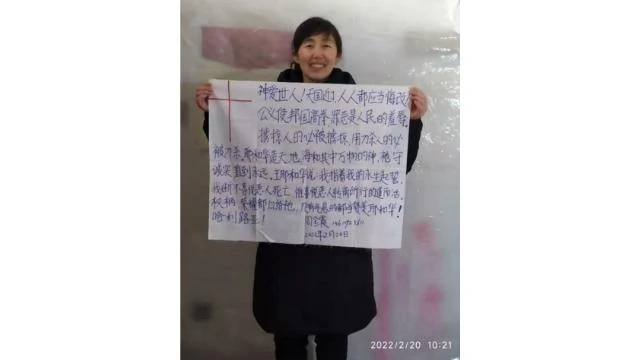 神爱世人！天国近，人人都应当悔改
公义使邦国高举，罪恶是人民的羞辱。
掳掠人的必被掳掠，用刀杀人的必
被刀杀。耶和华造天、地、海和其中万物的神，祂守
诚实直到永远。主耶和华说：我指着我的永生起誓，
我断不喜悦恶人死亡，惟喜悦恶人转离所行的道而活，
权柄、荣耀都归给祂，凡有气息的都当赞美耶和华！
哈利路亚！
2022年2月20日
2022/2/20 10:21